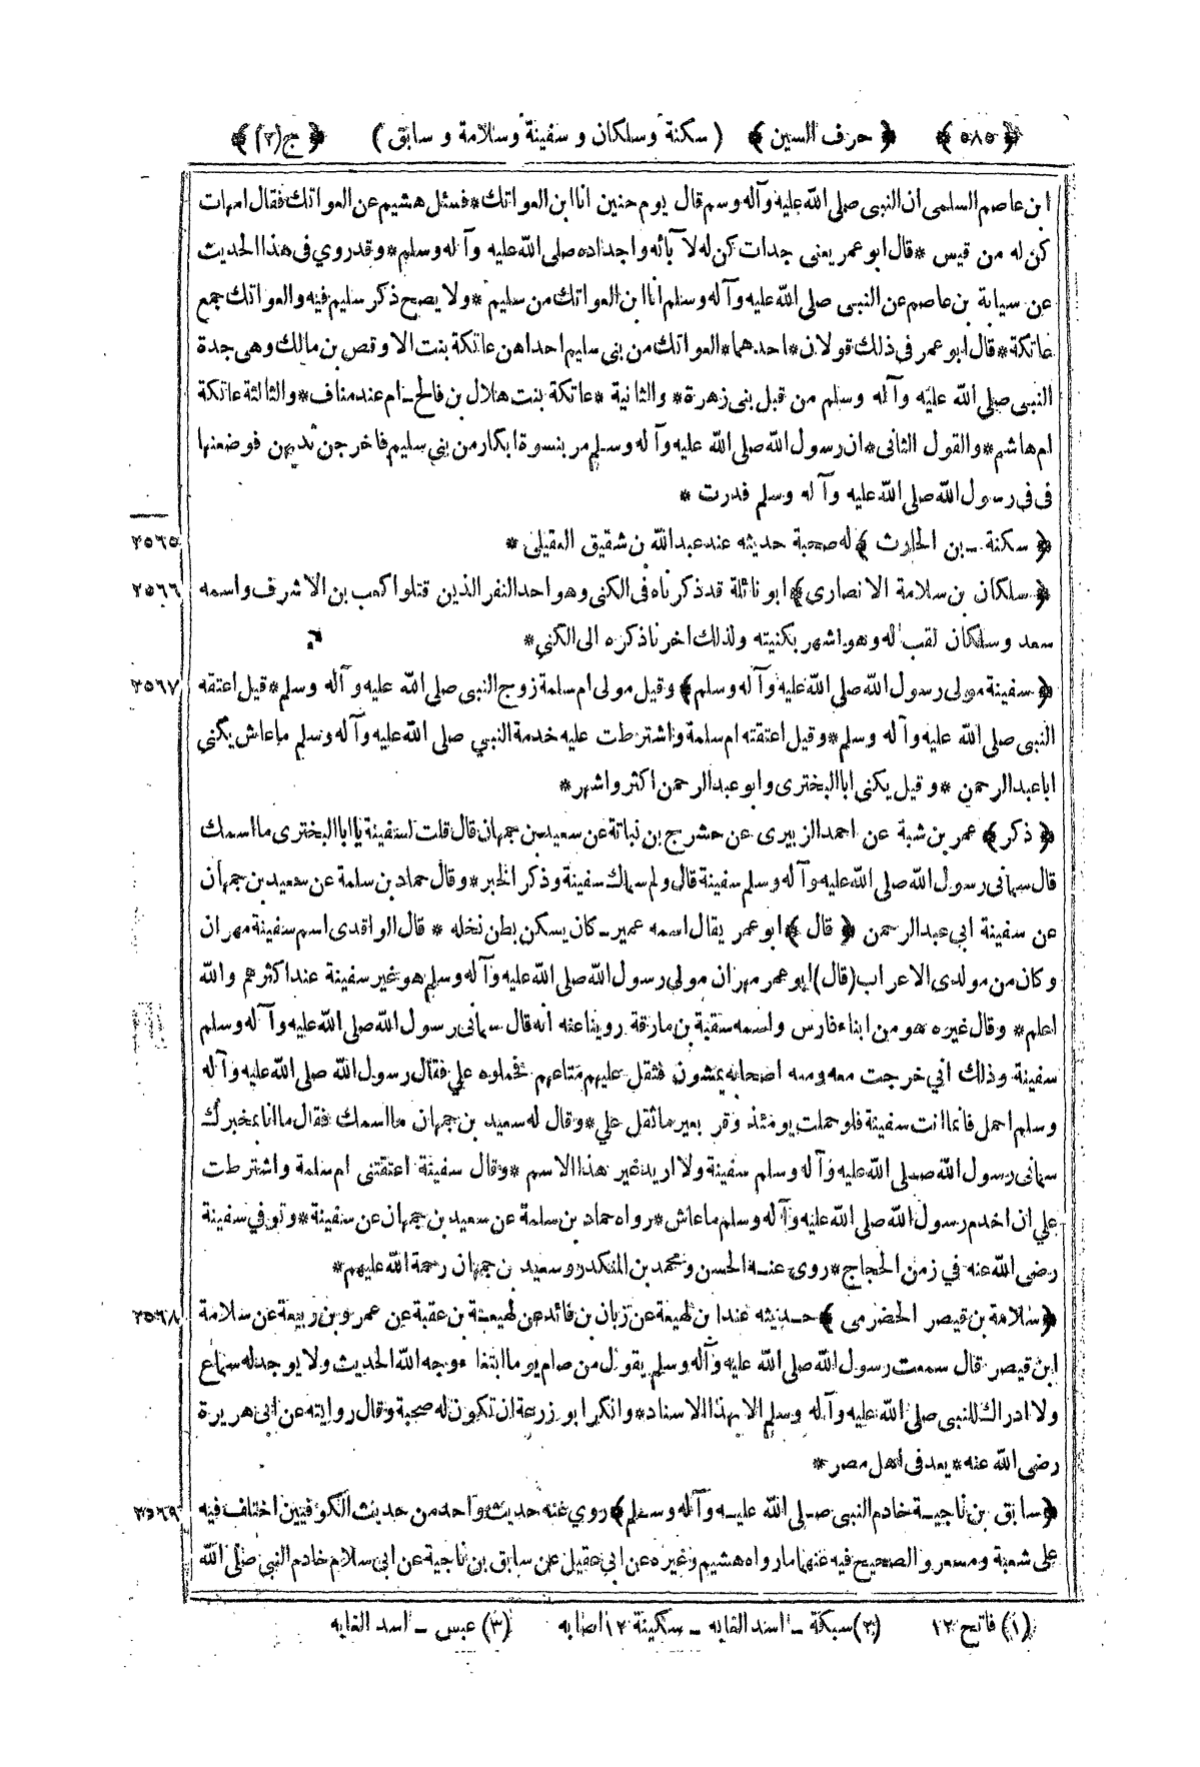 ﴿ ٥٨٥ ﴾ ﴿ حرف السين ﴾ ( سكنة وسلكان و سفينة وسلامة و سابق ) ﴿ ج(٢) ﴾
ابن عاصم السلمى ان النبى صلى الله عليه وآله وسم قال يوم حنين انا ابن العواتك * فسئل هشيم عن العواتك فقال امهات
كن له من قيس * قال ابو عمر يعنى جدات كن له لآ بائه واجداده صلى الله عليه وآله وسلم * وقد روي فى هذا الحديث
عن سيابة بن عاصم عن النبى صلى الله عليه وآله وسلم انا ابن العواتك من سليم * ولا يصح ذكر سليم فيه والعواتك جمع
عاتكة * قال ابو عمر فى ذلك قولان * احدهما * العواتك من بنى سليم احداهن عاتكة بنت الاوقص بن مالك وهى جدة
النبى صلى الله عليه وآله وسلم من قبل بنى زهرة * والثانية * عاتكة بنت هلال بن فالح ـ ام عبد مناف * والثالثة عاتكة
ام هاشم * والقول الثانى * ان رسول الله صلى الله عليه وآله وسلم مر بنسوة ابكار من بني سليم فاخرجن ثديهن فوضعنها
فى فى رسول الله صلى الله عليه وآله وسلم فدرت *
﴿ سكنة ـ بن الحارث ﴾ له صحبة حديثه عند عبد الله بن شقيق العقيلى * ٢٥٦٥
﴿ سلكان بن سلامة الانصارى ﴾ ابو نائلة قد ذكرناه فى الكنى وهو احد النفر الذين قتلوا كعب بن الاشرف واسمه ٢٥٦٦
سعد وسلكان لقب له وهو اشهر بكنيته ولذلك اخرنا ذكره الى الكني *
﴿ سفينة مولى رسول الله صلى الله عليه وآله وسلم ﴾ وقيل مولى ام سلمة زوج النبى صلى الله عليه وآله وسلم * قيل اعتقه ٢٥٦٧
النبى صلى الله عليه وآله وسلم * وقيل اعتقته ام سلمة واشترطت عليه خدمة النبي صلى الله عليه وآله وسلم ماعاش يكني
اباعبد الرحمن * وقيل يكنى ابا البخترى وابو عبد الرحمن اكثر واشهر *
﴿ ذكر ﴾ عمر بن شبة عن احمد الزبيرى عن حشرج بن نباتة عن سعيد بن جمهان قال قلت لسفينة يا ابا البخترى ما اسمك
قال سمانى رسول الله صلى الله عليه وآله وسلم سفينة قال ولم سماك سفينة وذكر الخبر * وقال حماد بن سلمة عن سعيد بن جمهان
عن سفينة ابي عبد الرحمن ﴿ قال ﴾ ابو عمر يقال اسمه عمير ـ كان يسكن بطن نخله * قال الواقدى اسم سفينة مهران
وكان من مولدى الاعراب (قال) ابو عمر مهران مولى رسول الله صلى الله عليه وآله وسلم هو غير سفينة عند اكثرهم والله
اعلم * وقال غيره هو من ابناء فارس واسمه سقبة بن مارقة روينا عنه انه قال سمانى رسول الله صلى الله عليه وآله وسلم
سفينة وذلك اني خرجت معه ومعه اصحابه يمشون فثقل عليهم متاعهم فحملوه علي فقال رسول الله صلى الله عليه وآله
وسلم احمل فانما انت سفينة فلو حملت يومئذ وقر بعير ماثقل علي * وقال له سعيد بن جمهان ما اسمك فقال ما انا بمخبرك
سمانى رسول الله صلى الله عليه وآله وسلم سفينة ولا اريد غير هذا الاسم * وقال سفينة اعتقتنى ام سلمة واشترطت
علي ان اخدم رسول الله صلى الله عليه وآله وسلم ماعاش * رواه حماد بن سلمة عن سعيد بن جمهان عن سفينة * وتوفي سفينة
رضى الله عنه في زمن الحجاج * روى عنه الحسن ومحمد بن المنكدر وسعيد بن جمهان رحمة الله عليهم *
﴿ سلامة بن قيصر الحضرمى ﴾ حديثه عند ابن لهيعة عن زبان بن فائد عن لهيعة بن عقبة عن عمرو بن ربيعة عن سلامة ٢٥٦٨
ابن قيصر قال سمعت رسول الله صلى الله عليه وآله وسلم يقول من صام يوما ابتغاء وجه الله الحديث ولا يوجد له سماع
ولا ادراك للنبى صلى الله عليه وآله وسلم الا بهذا الاسناد * وانكر ابو زرعة ان تكون له صحبة وقال روايته عن ابى هريرة
رضى الله عنه * يعد فى اهل مصر *
﴿ سابق بن ناجية خادم النبى صلى الله عليه وآله وسلم ﴾ روي عنه حديث واحد من حديث الكوفيين اختلف فيه ٢٥٦٩
على شعبة ومسعر والصحيح فيه عنهما مارواه هشيم وغيره عن ابي عقيل عن سابق بن ناجية عن ابى سلام خادم النبى صلى الله
(١) فاتح ١٢ (٢) سبكة ـ اسد الغابه ـ سكينة ١٢ اصابه (٣) عبس ـ اسد الغابه